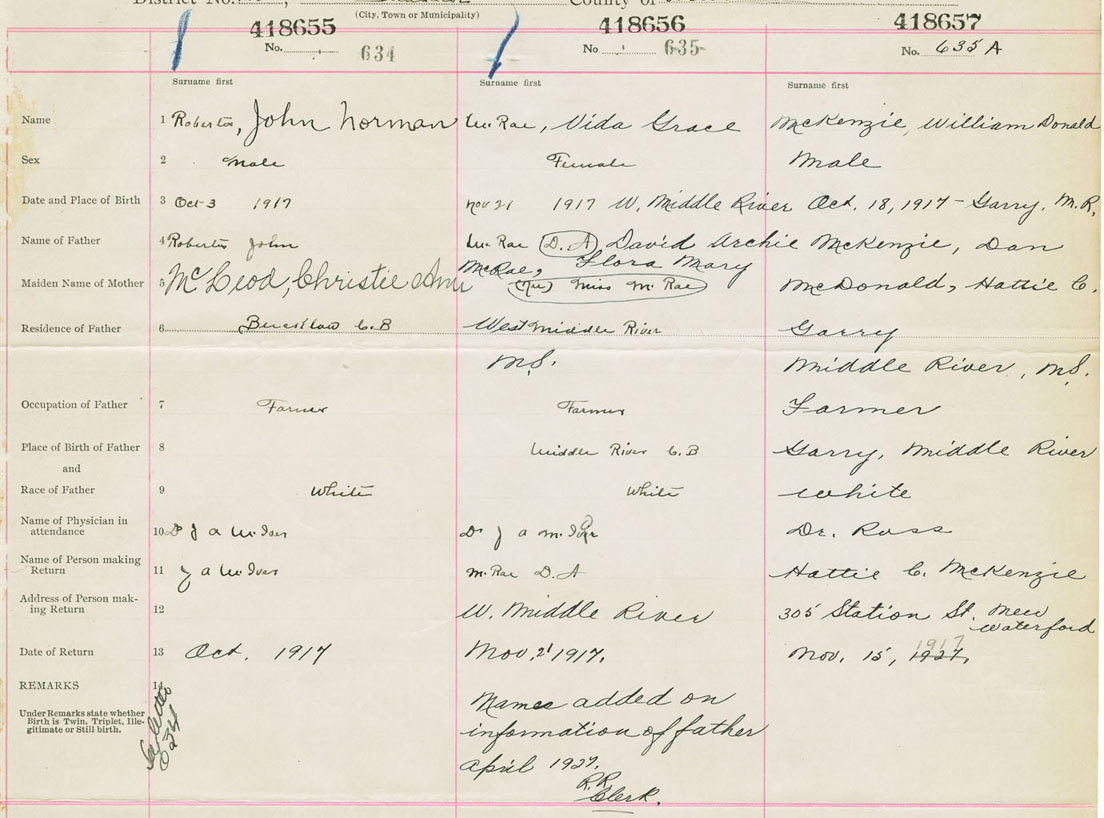 District No.
County of
(City, Town or Municipality)
418655 418656 418657
No. 634 No 635 No. 635 A
Surname first Surname first Surname first
Name 1 Roberts, John Norman McRae, Vida Grace McKenzie, William Donald
Sex 2 male Female Male
Date and Place of Birth 3 Oct 3 1917 Nov 21 1917 W. Middle River Oct. 18, 1917 - Garry. M.R.
Name of Father 4 Roberts John McRae D. A. David Archie McKenzie, Dan
Maiden Name of Mother 5 McLeod, Christie Ann McRae, Flora Mary McDonald, Hattie C.
(nee) Miss McRae
Residence of Father 6 C.B West Middle River Garry
N.S. Middle River, N.S.
Occupation of Father 7 Farmer Farmer Farmer
Place of Birth of Father 8 Middle River C.B Garry, Middle River
and
Race of Father 9 White White White
Name of Physician in
attendance 10 Dr J A McIver Dr J A McIver Dr. Ross
Name of Person making
Return 11 J A McIver McRae D. A Hattie C. McKenzie
Address of Person mak-
ing Return 12 W. Middle River 305 Station St. New
Waterford
1917
Date of Return 13 Oct. 1917 Nov. 21 1917. Nov. 15, 1927.
REMARKS 14
Under Remarks state whether
Birth is Twin, Triplet, Ille-
gitimate or Still birth.
Names added on
information of father
April 1927.
R.R.
Clerk.